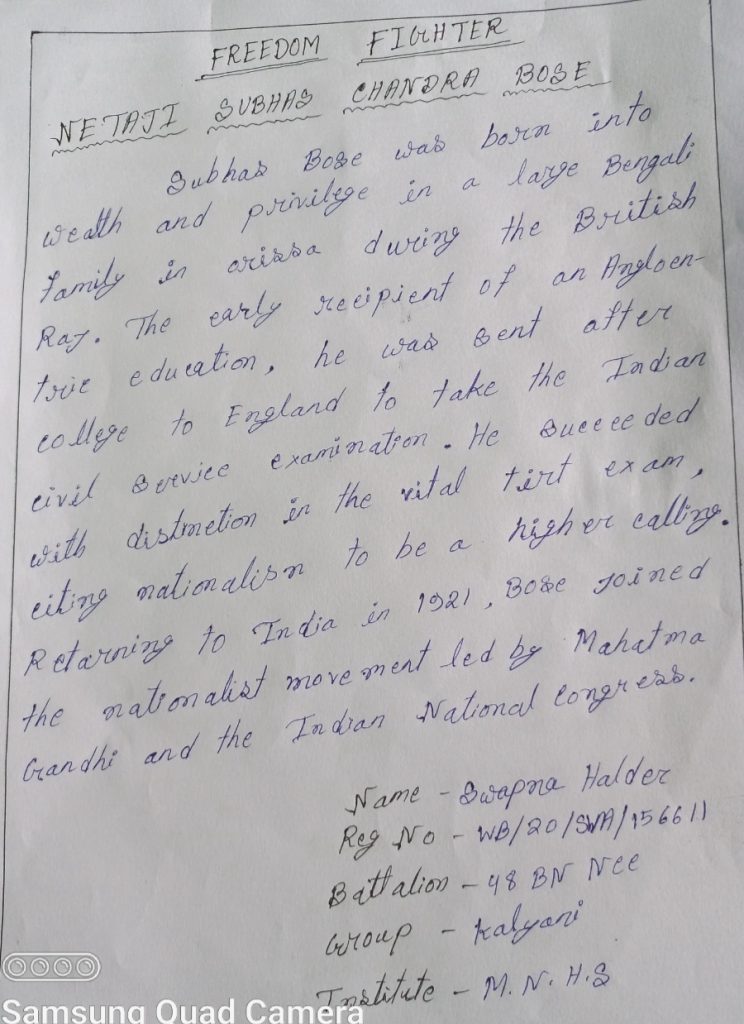 FREEDOM FIGHTER
NETAJI SUBHAS CHANDRA BOSE
Subhas Bose was born into
wealth and privilege in a large Bengali
family in orissa during the British
Raj. The early recipient of an Angloen-
tric education, he was sent after
college to England to take the Indian
civil service examination. He succeeded
with distinction in the vital first exam,
citing nationalism to be a higher calling.
Retarning to India in 1921, Bose joined
the nationalist movement led by Mahatma
Gandhi and the Indian National Congress.
Name - Swapna Halder
Reg No - WB/20/SWA/156611
Battalion - 48 BN NCC
Group - Kalyani
Institute - M.N.H.S
Samsung Quad Camera